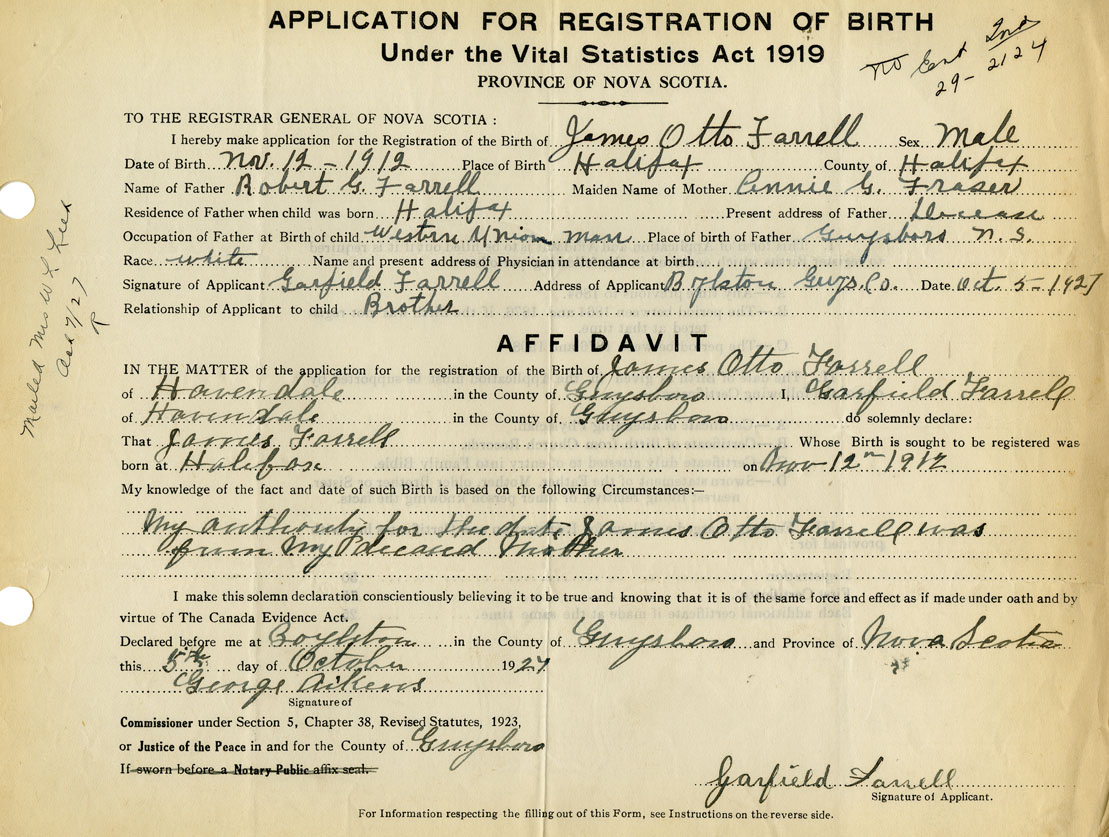 APPLICATION FOR REGISTRATION OF BIRTH
Under the Vital Statistics Act 1919
PROVINCE OF NOVA SCOTIA.
No Cert 2nd
29- 2124
TO THE REGISTRAR GENERAL OF NOVA SCOTIA :
I hereby make application for the Registration of the Birth of James Otto Farrell Sex Male
Date of Birth Nov. 12 - 1912 Place of Birth Halifax County of Halifax
Name of Father Robert G. Farrell Maiden Name of Mother Annie G. Fraser
Residence of Father when child was born Halifax Present address of Father Decease
Occupation of Father at Birth of child Western Union man Place of birth of Father Guysboro N. S.
Race white Name and present address of Physician in attendance at birth
Signature of Applicant Garfield Farrell Address of Applicant Boylston Guys. Co. Date Oct. 5 - 1927
Relationship of Applicant to child Brother
Mailed Mrs W. L.
Oct 7/27
R
AFFIDAVIT
IN THE MATTER of the application for the registration of the Birth of James Otto Farrell
of Havendale in the County of Guysboro I, Garfield Farrell
of Havendale in the County of Guysboro do solemnly declare:
That James Farrell Whose Birth is sought to be registered was
born at Halifax on Nov 12th 1912
My knowledge of the fact and date of such Birth is based on the following Circumstances:—
My authority for the date James Otto Farrell was
from My Mother
I make this solemn declaration conscientiously believing it to be true and knowing that it is of the same force and effect as if made under oath and by
virtue of The Canada Evidence Act.
Declared before me at Boylston in the County of Guysboro and Province of Nova Scotia
this 5th day of October 1927
George Aikens
Signature of
Commissioner under Section 5, Chapter 38, Revised Statutes, 1923,
or Justice of the Peace in and for the County of Guysboro
If sworn before a Notary Public affix seal.
Garfield Farrell
Signature of Applicant.
For Information respecting the filling out of this Form, see Instructions on the reverse side.